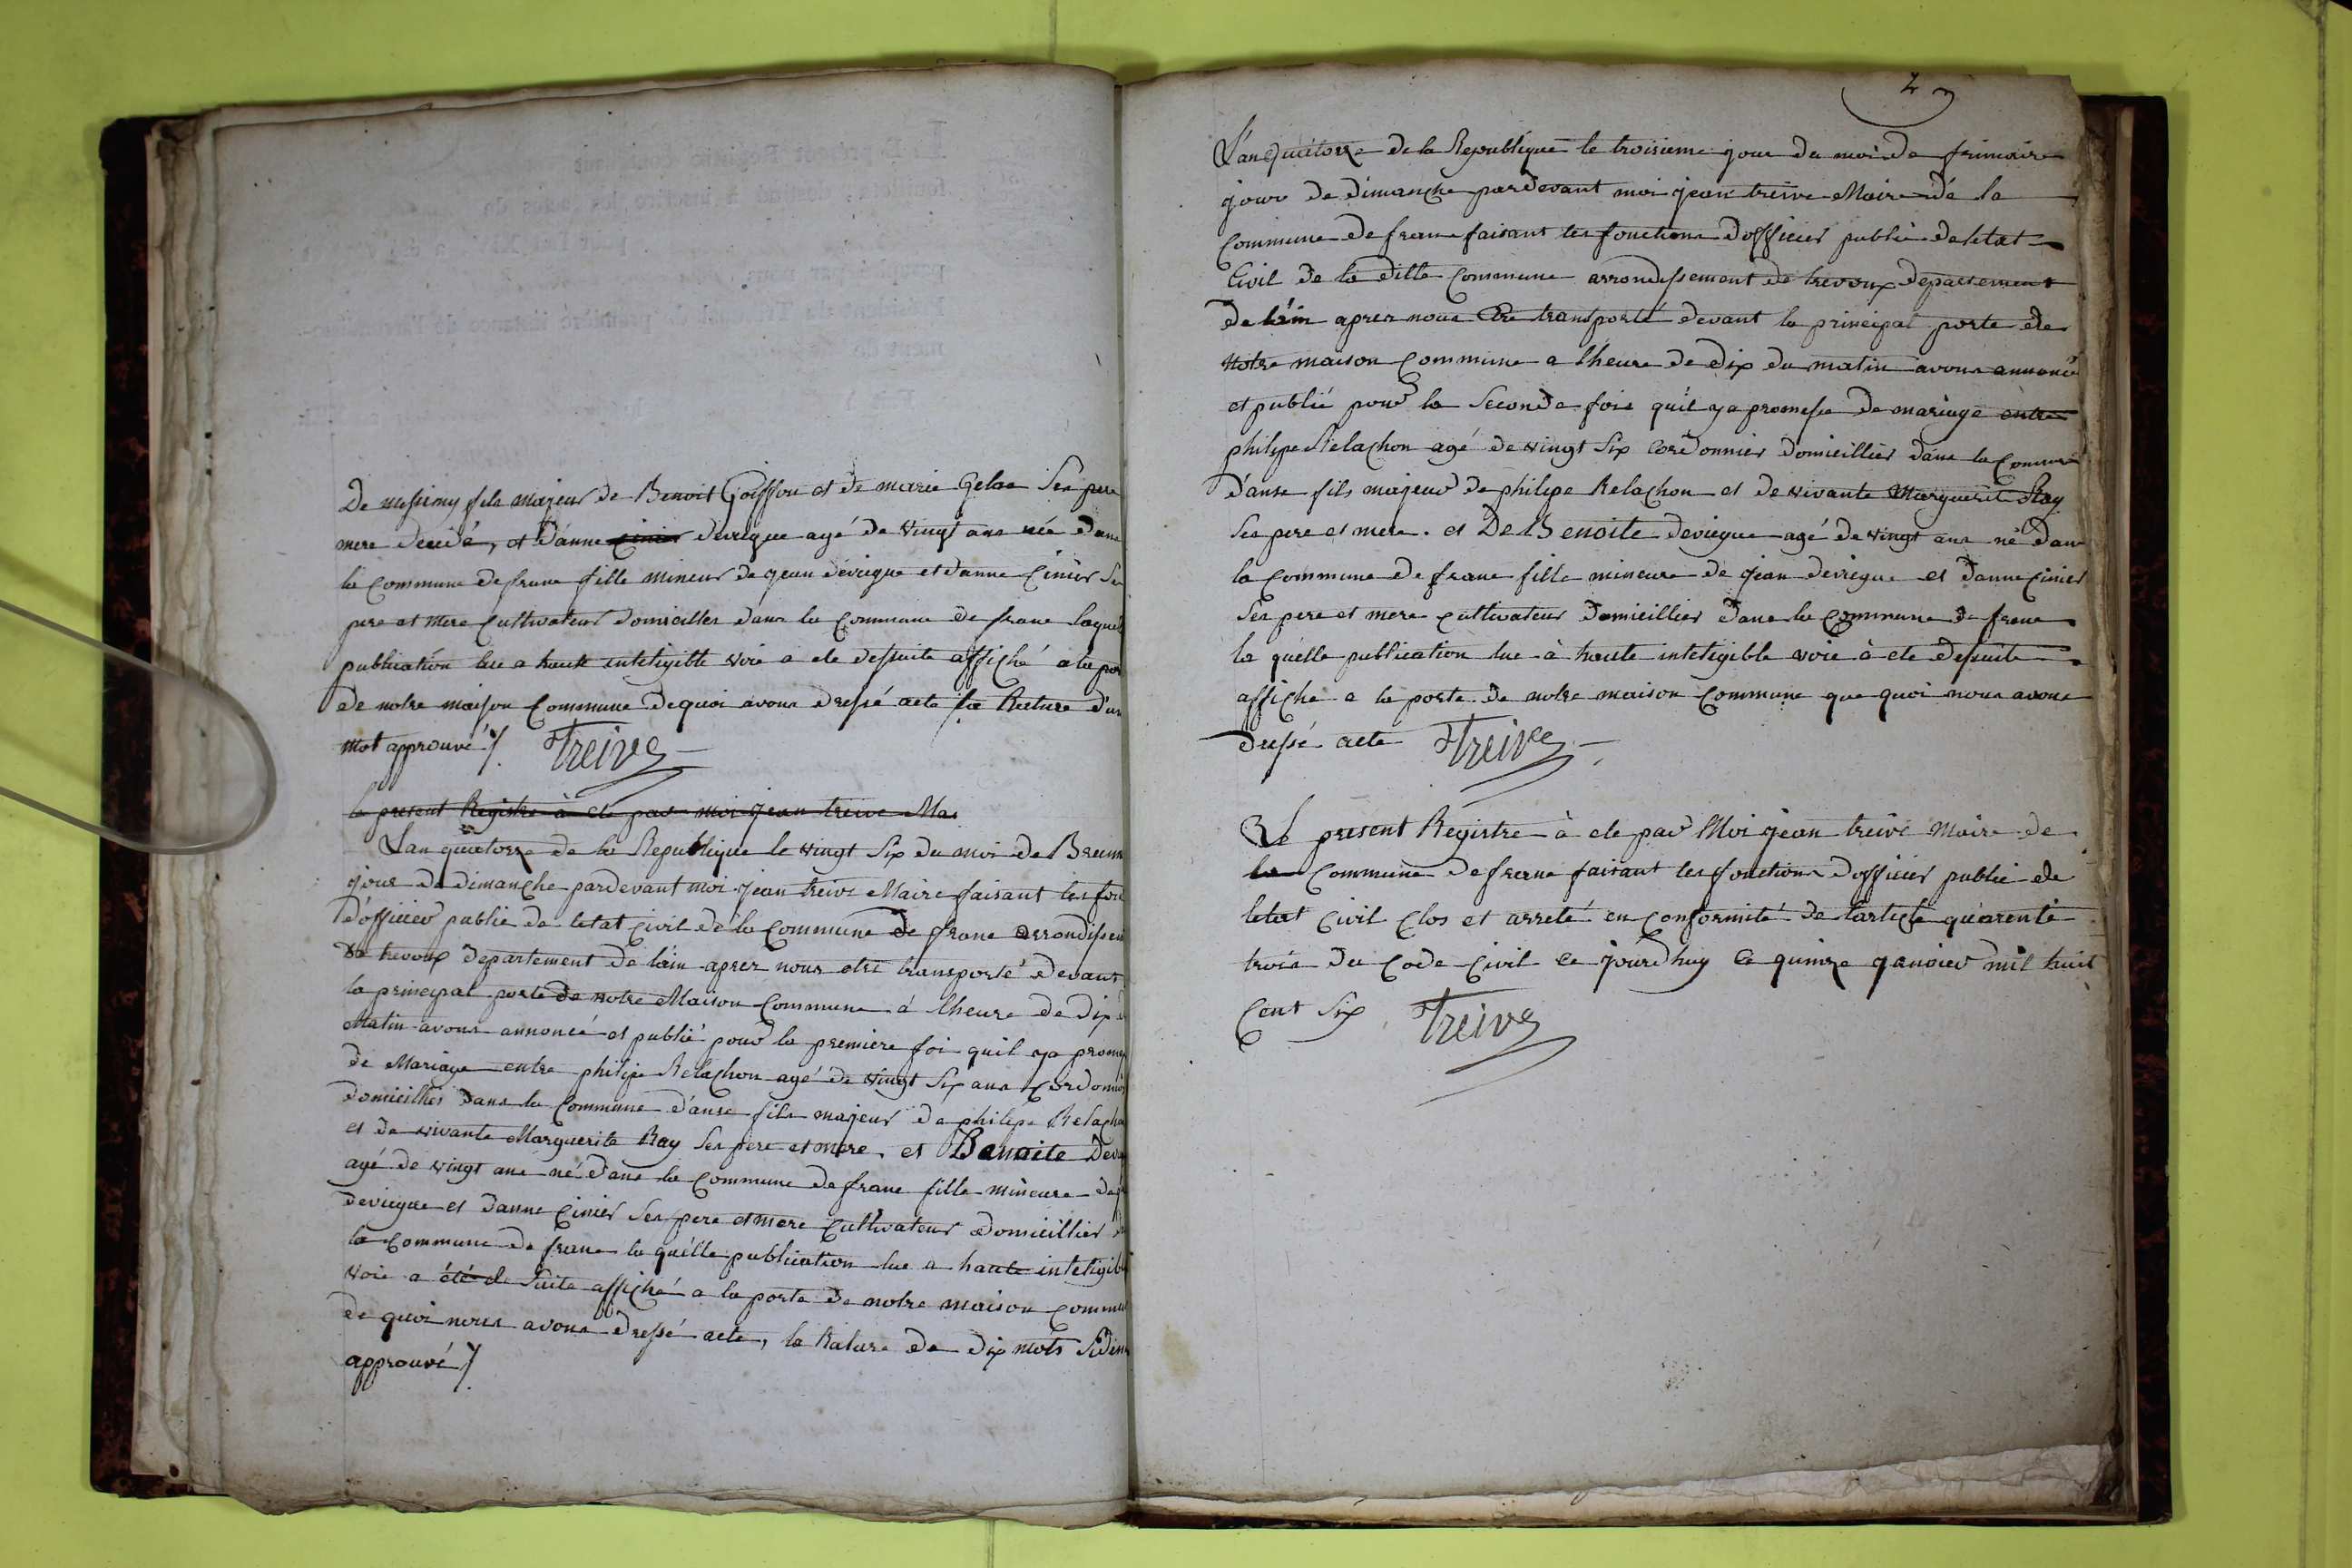 De messimy fils majeur de Benoit Goiffon et de marie Gelas Ses pere
mere decedé, et d'anne cinier devicque agé de vingt ans née dans
la commune de frane fille mineur de jean devicque et d'anne Cinier Se
pere et mere Cultivateur domicilles dans la Commune de frane laquel
publication lue a haute inteligible voie a ete dessuite affiché a la por
de notre maison Commune de quoi avons dressé acte la Rature d'un
mot approuvé Treive
le present Registre à ete par moi jean treive Mai
L'an quatorze de la Republique le vingt Six du moi de Brum
jour de dimanche pardevant moi jean treive Maire faisant les fon
d'officier public de letat Civil de la Commune de frane arrondissem
de trevoux departement de lain apres nous etre transporté devant
la principal porte de notre Maison Commune à lheure de dix d
Matin avons annoncé et publié pour la premiere foi quil ya promes
de Mariage entre philipe Relachon agé de vingt Six ans Cordonnie
domicilles dans la Commune d'anse fils majeur de philipe Relacho
et de vivante Marguerite Ray Ses pere et mere. et Benoite Dev
agé de vingt ans né dans la Commune de frane fille mineure de
devicque et d'anne Cinier Ses pere et mere Cultivateur domicillier d
la Commune de frane la quélle publication lue a haute inteligibl
voie a été de Suite affiché a la porte de notre maison Commu
de quoi nous avons dressé acte, la Rature de dix mots
approuvé
2
L'an Quatorze de la Republique le troisieme jour du moi de frimaire
jour de dimanche pardevant moi jean treive Maire de la
Commune de frane faisant les fonctions d'officier public de letat
Civil de la ditte Commune arrondissement de trevoux departement
de lain apres nous Etre transporté devant la principal porte de
notre maison Commune a lheure de dix du matin avons annoncé
et publié pour la Seconde fois qu'il ya promesse de mariage entre
philipe Relachon agé de vingt Six Cordonnier domicillier dans la Commune
d'anse fils majeur de philipe Relachon et de vivante Marguerite Ray
Ses pere et mere. et De Benoite devicque agé de vingt ans né dans
la Commune de frane fille mineure de jean devicque et d'anne cinier
Ses pere et mere cultivateur domicillier dans la Commune de frane
la quélle publication lue à haute inteligible voie à ete desuite
affiche a la porte de notre maison Commune que quoi nous avons
dressé acte Treive
Le present Registre à ete par Moi jean treive Maire de
la Commune de frane faisant les fonctions d'officier public de
letat Civil Clos et arreté en Conformité de l'article quarente
trois du Code Civil ce jourdhuy Ce quinze janvier mil huit
Cent Six Treive